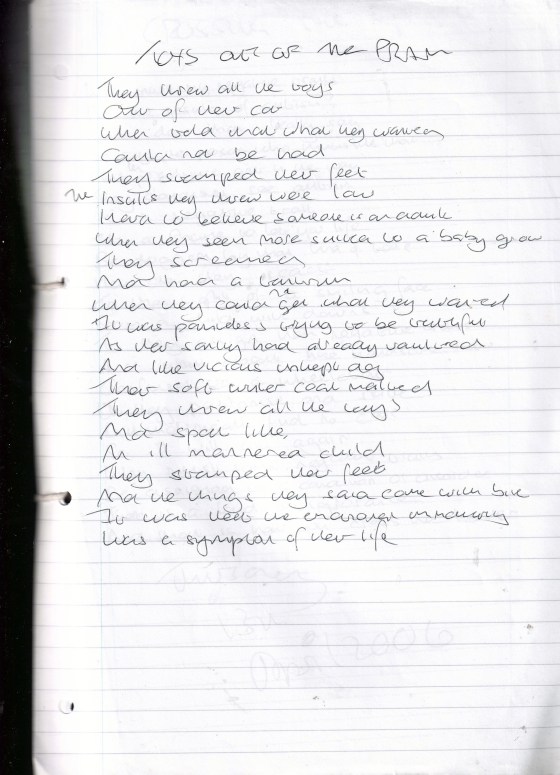 TOYS OUT OF THE PRAM
They threw all the toys
Out of their cot
When told that what they wanted
Could not be had
They stamped their feet
The Insults they threw were low
Hard to believe someone is an adult
When they seem more suited to a baby grow
They screamed
And had a tantrum
When they could n't get what they wanted
It was pointless trying to be truthful
As their sanity had already vanished
And like vicious unkept dog
Their soft outer coat matted
They threw all the toys
And spoilt like,
An ill mannered child
They stamped their feet
And the things they said came with bite
It was their
Was a symptom of their life